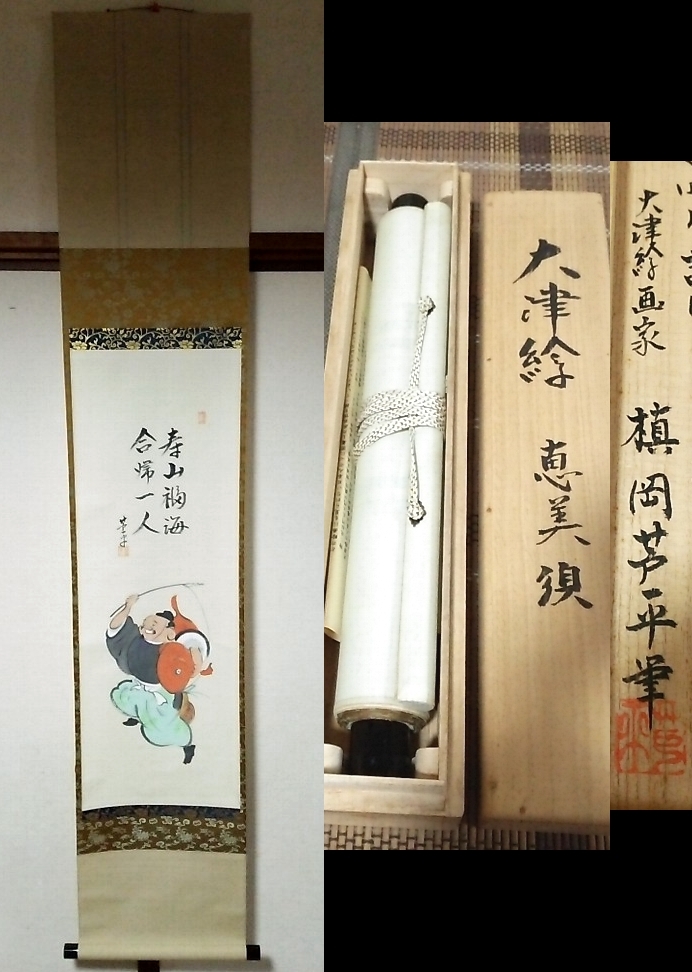 寿山福海
合帰一人
芦平
大津絵
恵美須
大津絵画家
槙岡芦平筆